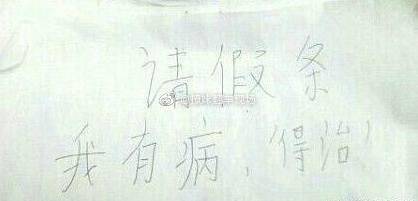 请假条
我有病,得治!